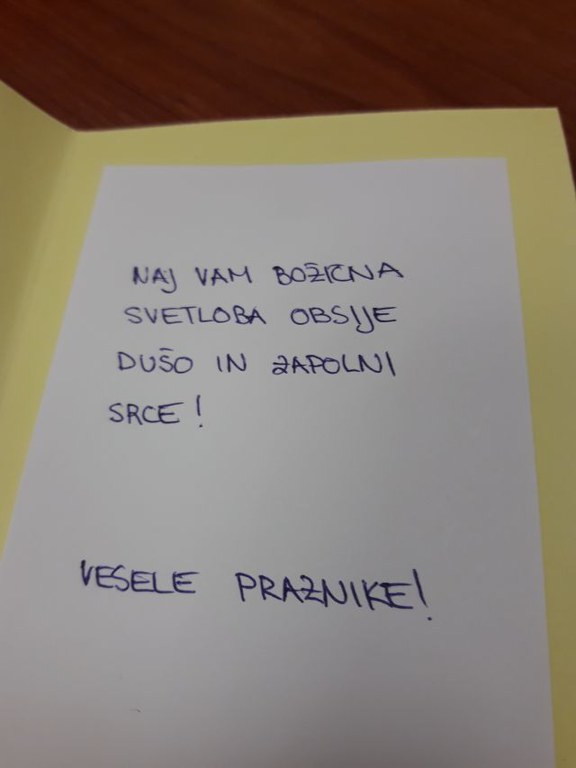 NAJ VAM BOŽIČNA
SVETLOBA OBSIJE
DUŠO IN ZAPOLNI
SRCE!
VESELE PRAZNIKE!